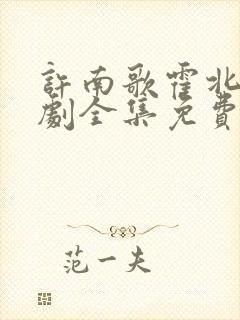 許南歌霍北
劇全集免費
范一夫